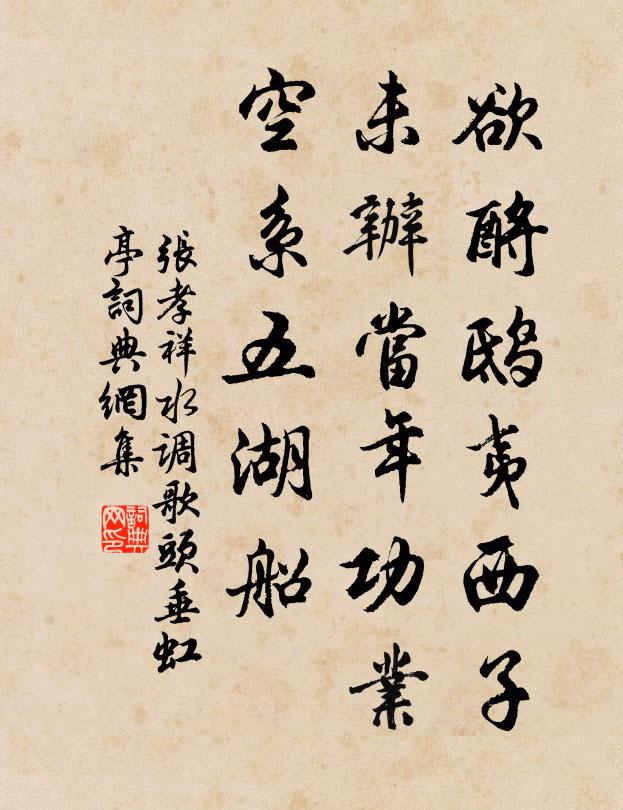 欲酹鸱夷西子
未辦當年功業
空系五湖船
張孝祥水调歌頭垂虹
亭詞典網集
詞典
网印